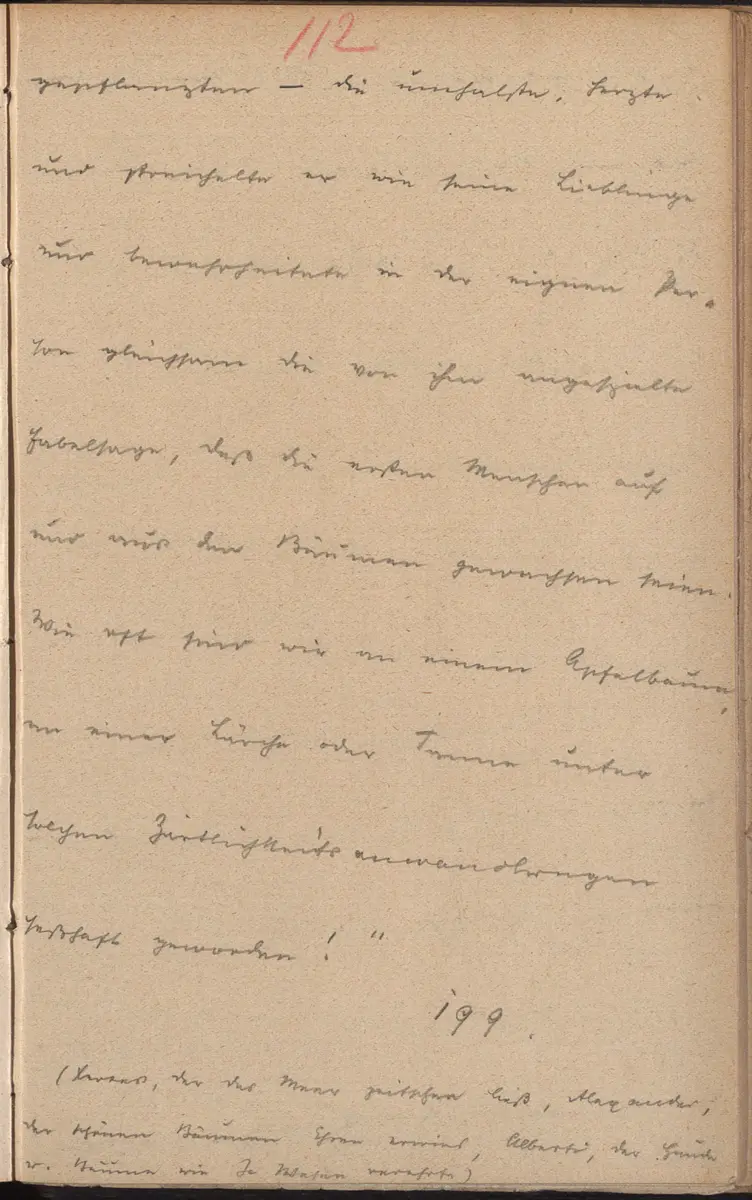 112
gepflanzten — die umhalste, herzte
und streichelte er wie seine Lieblinge
und bewahrheitete in der eignen Per-
son gleichsam die von ihm angespielte
Fabelsage, daß die ersten Menschen auf
und aus den Bäumen gewachsen seien.
Wie oft sind wir an einem Apfelbaum,
an einer Lärche oder Tanne unter
solchen Zärtlichkeitsanwandlungen
seßhaft geworden! "
199.
(Xerxes, der das Meer peitschen ließ, Alexander,
der schönen Bäumen Ehren erwies, Alberti, der Hunde
u. Bäume wie Wesen verehrte)